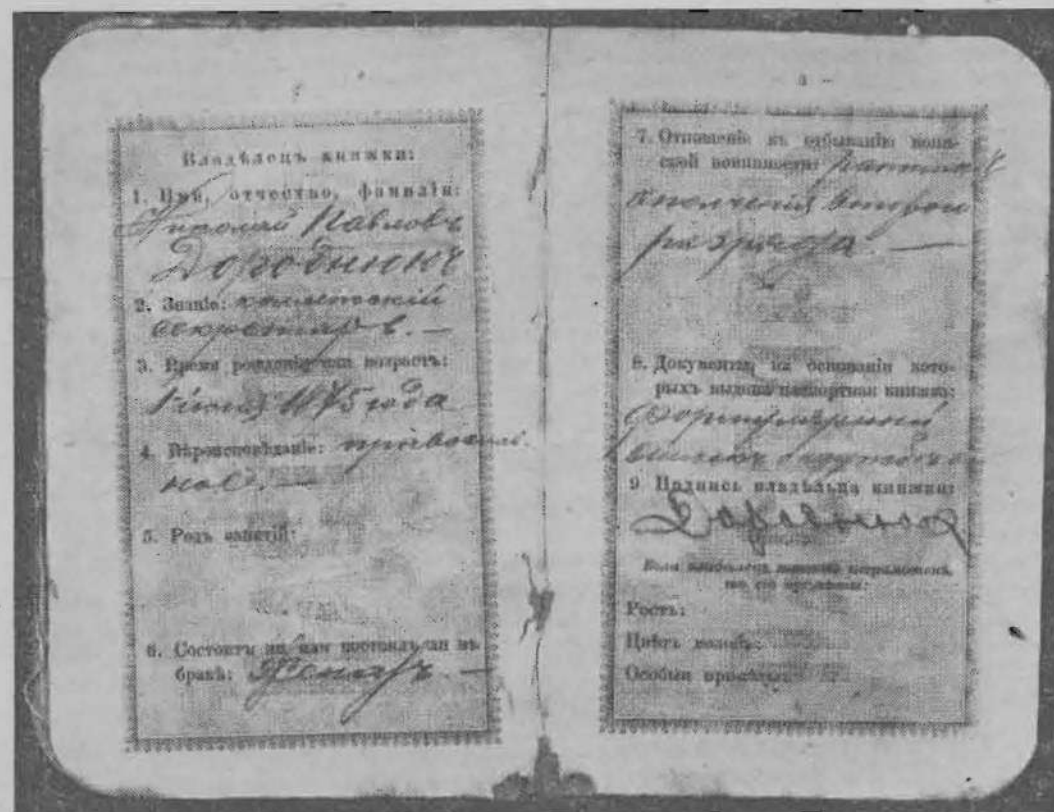 Владѣлецъ книжки:
1. Имя, отчество, фамилія:
Николай Павловъ
2. Званіе: коллежскій
секретарь. —
3. Время рожденія или возрастъ:
1875 года
4. Вѣроисповѣданіе: православ-
ное. —
5. Родъ занятій:
6. Состоитъ ли или состоялъ ли въ
бракѣ: Женатъ. —
7. Отношеніе къ отбыванію воин-
ской повинности: ратникъ
ополченія второго
разряда. —
8. Документы, на основаніи кото-
рыхъ выдана паспортная книжка:
Формулярный
списокъ
9. Подпись владѣльца книжки:
Если владѣлецъ книжки неграмотенъ,
то его примѣты:
Ростъ:
Цвѣтъ волосъ:
Особыя примѣты: